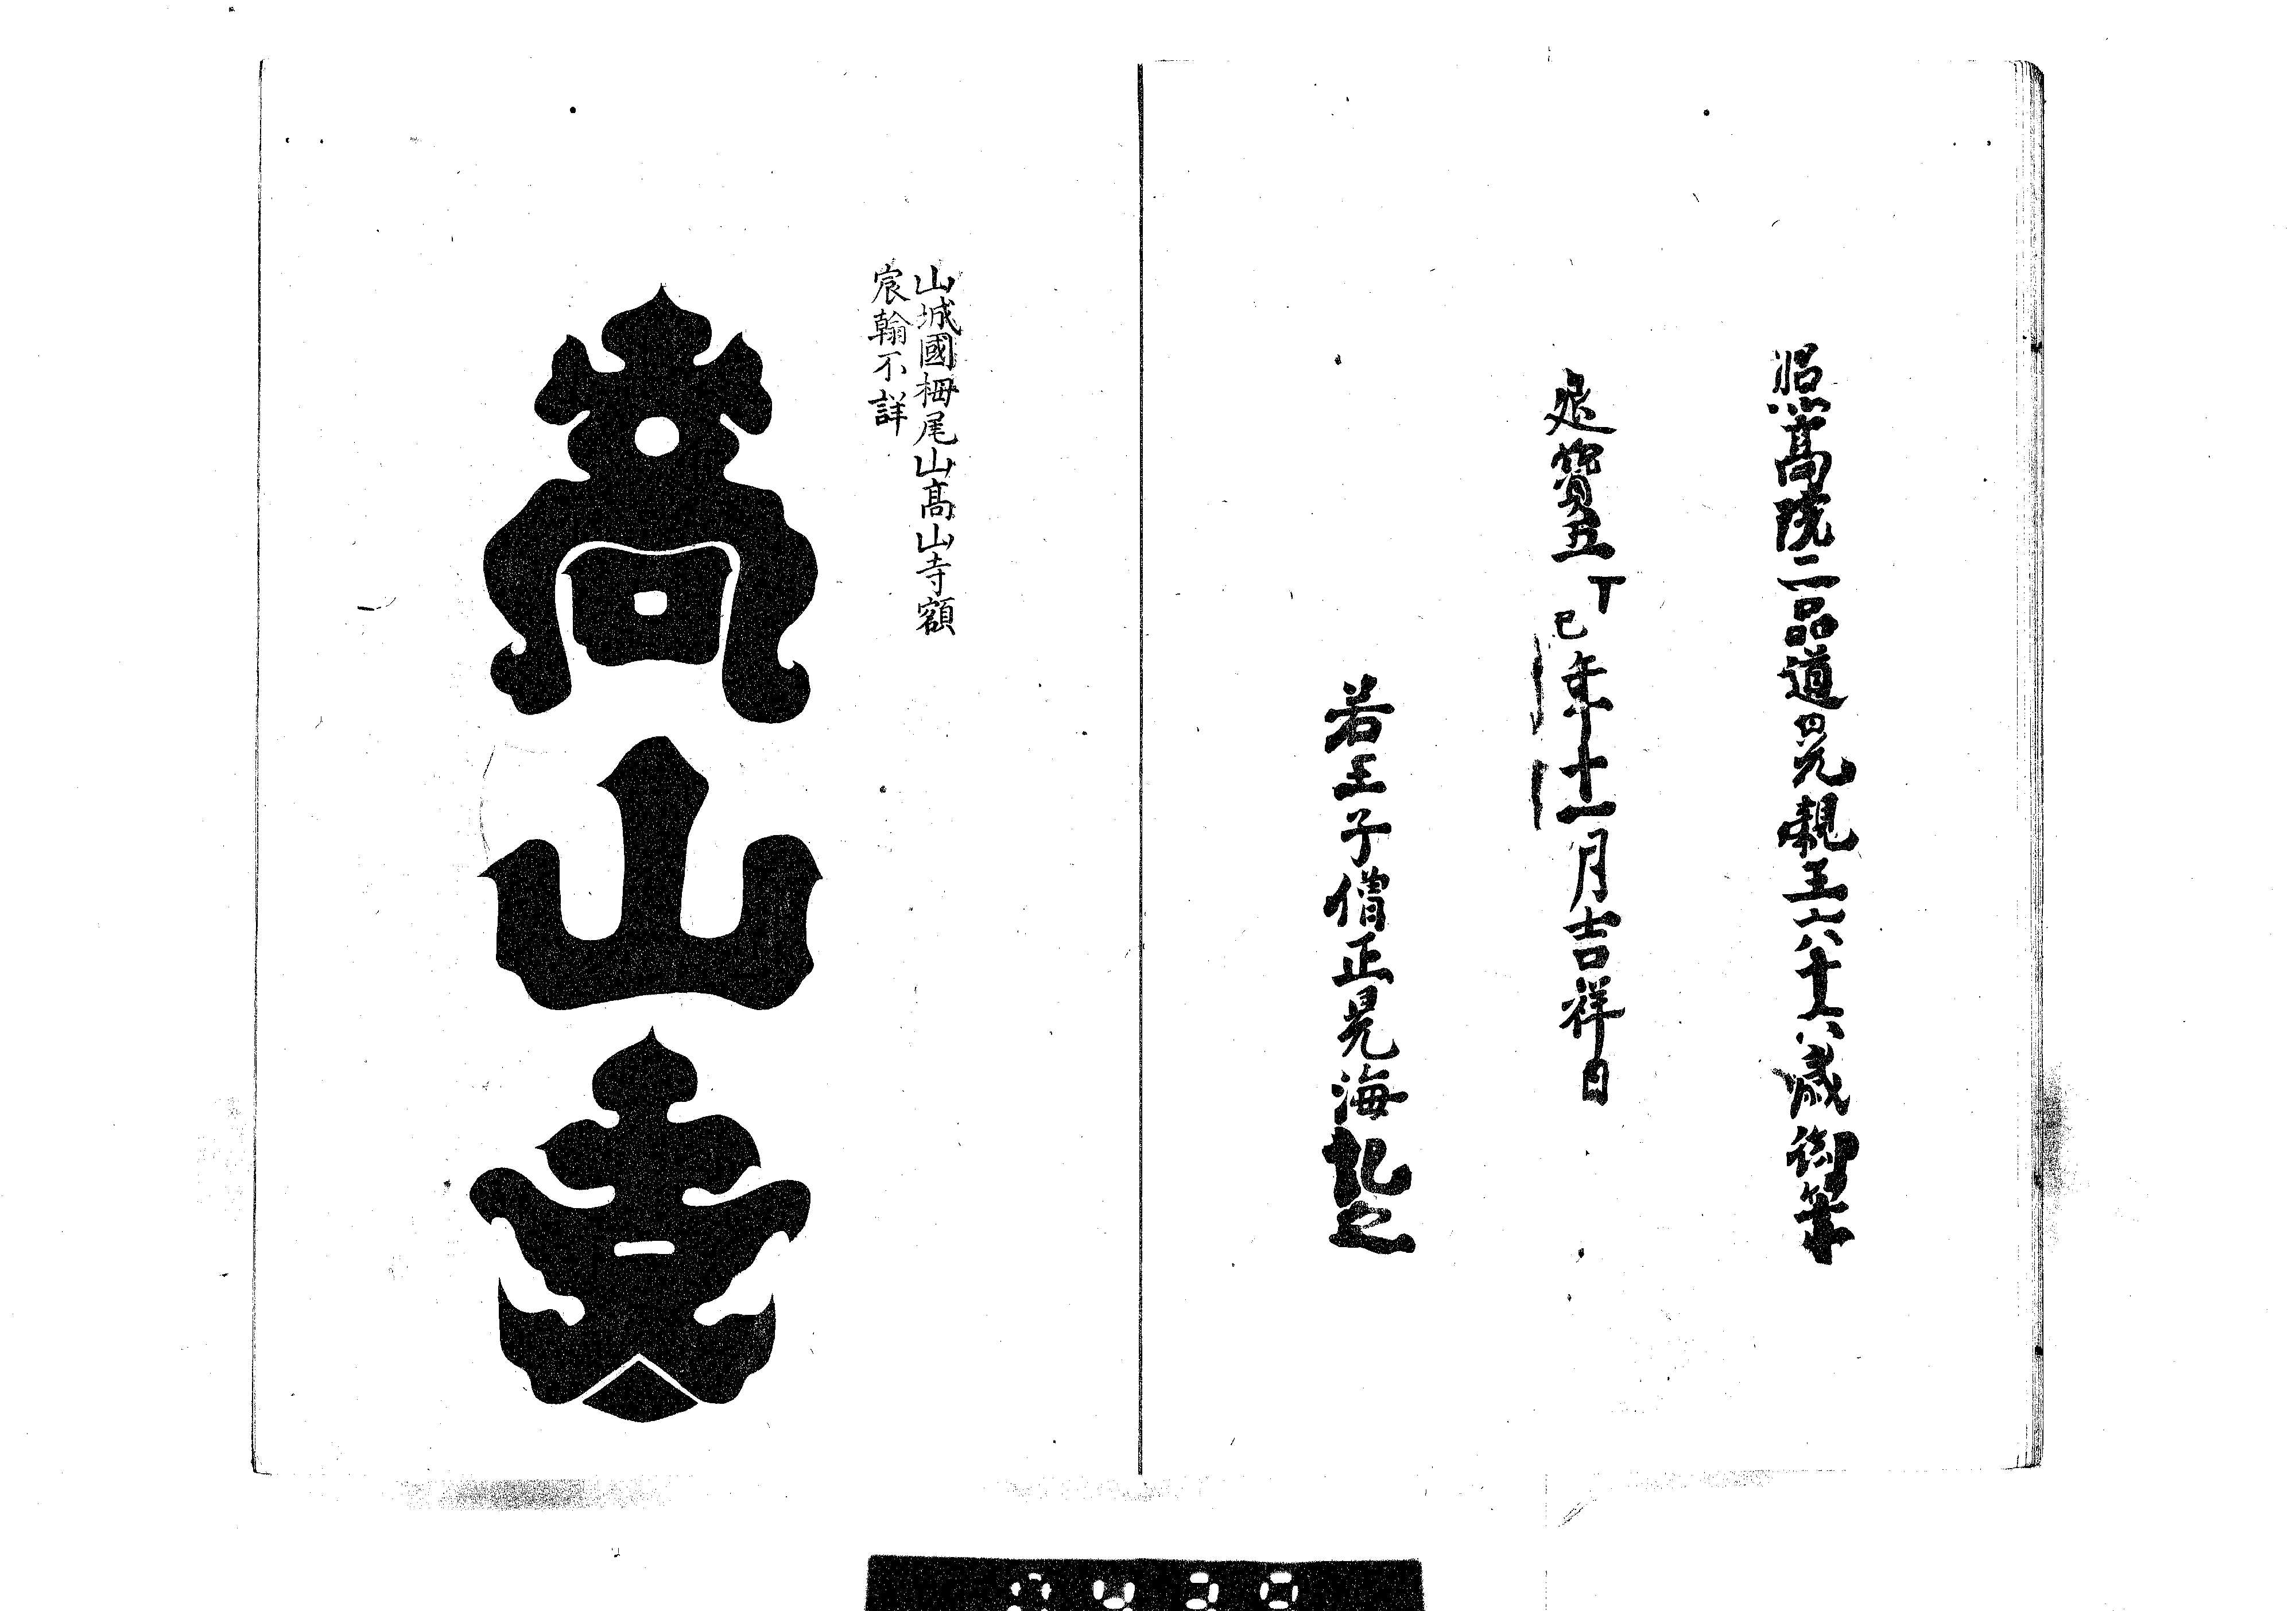 照髙院二品道晃親王六十六歳御筆
延寶五丁巳年十一月吉祥日
若王子僧正晃海記之
山城國栂尾山髙山寺額
宸翰不詳
高山寺